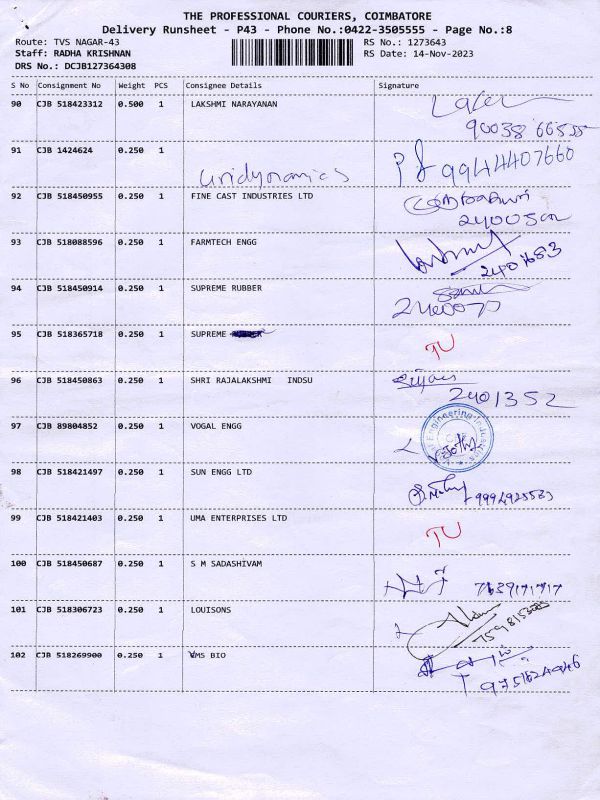 THE PROFESSIONAL COURIERS, COIMBATORE
Delivery Runsheet - P43 - Phone No.:0422-3505555 - Page No.:8
Route: TVS NAGAR-43
RS No.: 1273643
Staff: RADHA KRISHNAN
RS Date: 14-Nov-2023
DRS No.: DCJB127364308
S No Consignment No Weight PCS Consignee Details Signature
90 CJB 518423312 0.500 1 LAKSHMI NARAYANAN
91 CJB 1424624 0.250 1
Gridynamics 9944407660
92 CJB 518450955 0.250 1 FINE CAST INDUSTRIES LTD
93 CJB 518088596 0.250 1 FARMTECH ENGG
2407683
94 CJB 518450914 0.250 1 SUPREME RUBBER
95 CJB 518365718 0.250 1 SUPREME
TU
96 CJB 518450863 0.250 1 SHRI RAJALAKSHMI INDSU
2401352
97 CJB 89804852 0.250 1 VOGAL ENGG
98 CJB 518421497 0.250 1 SUN ENGG LTD
99 CJB 518421403 0.250 1 UMA ENTERPRISES LTD
TU
100 CJB 518450687 0.250 1 S M SADASHIVAM
7639171717
101 CJB 518306723 0.250 1 LOUISONS
102 CJB 518269900 0.250 1 VMS BIO